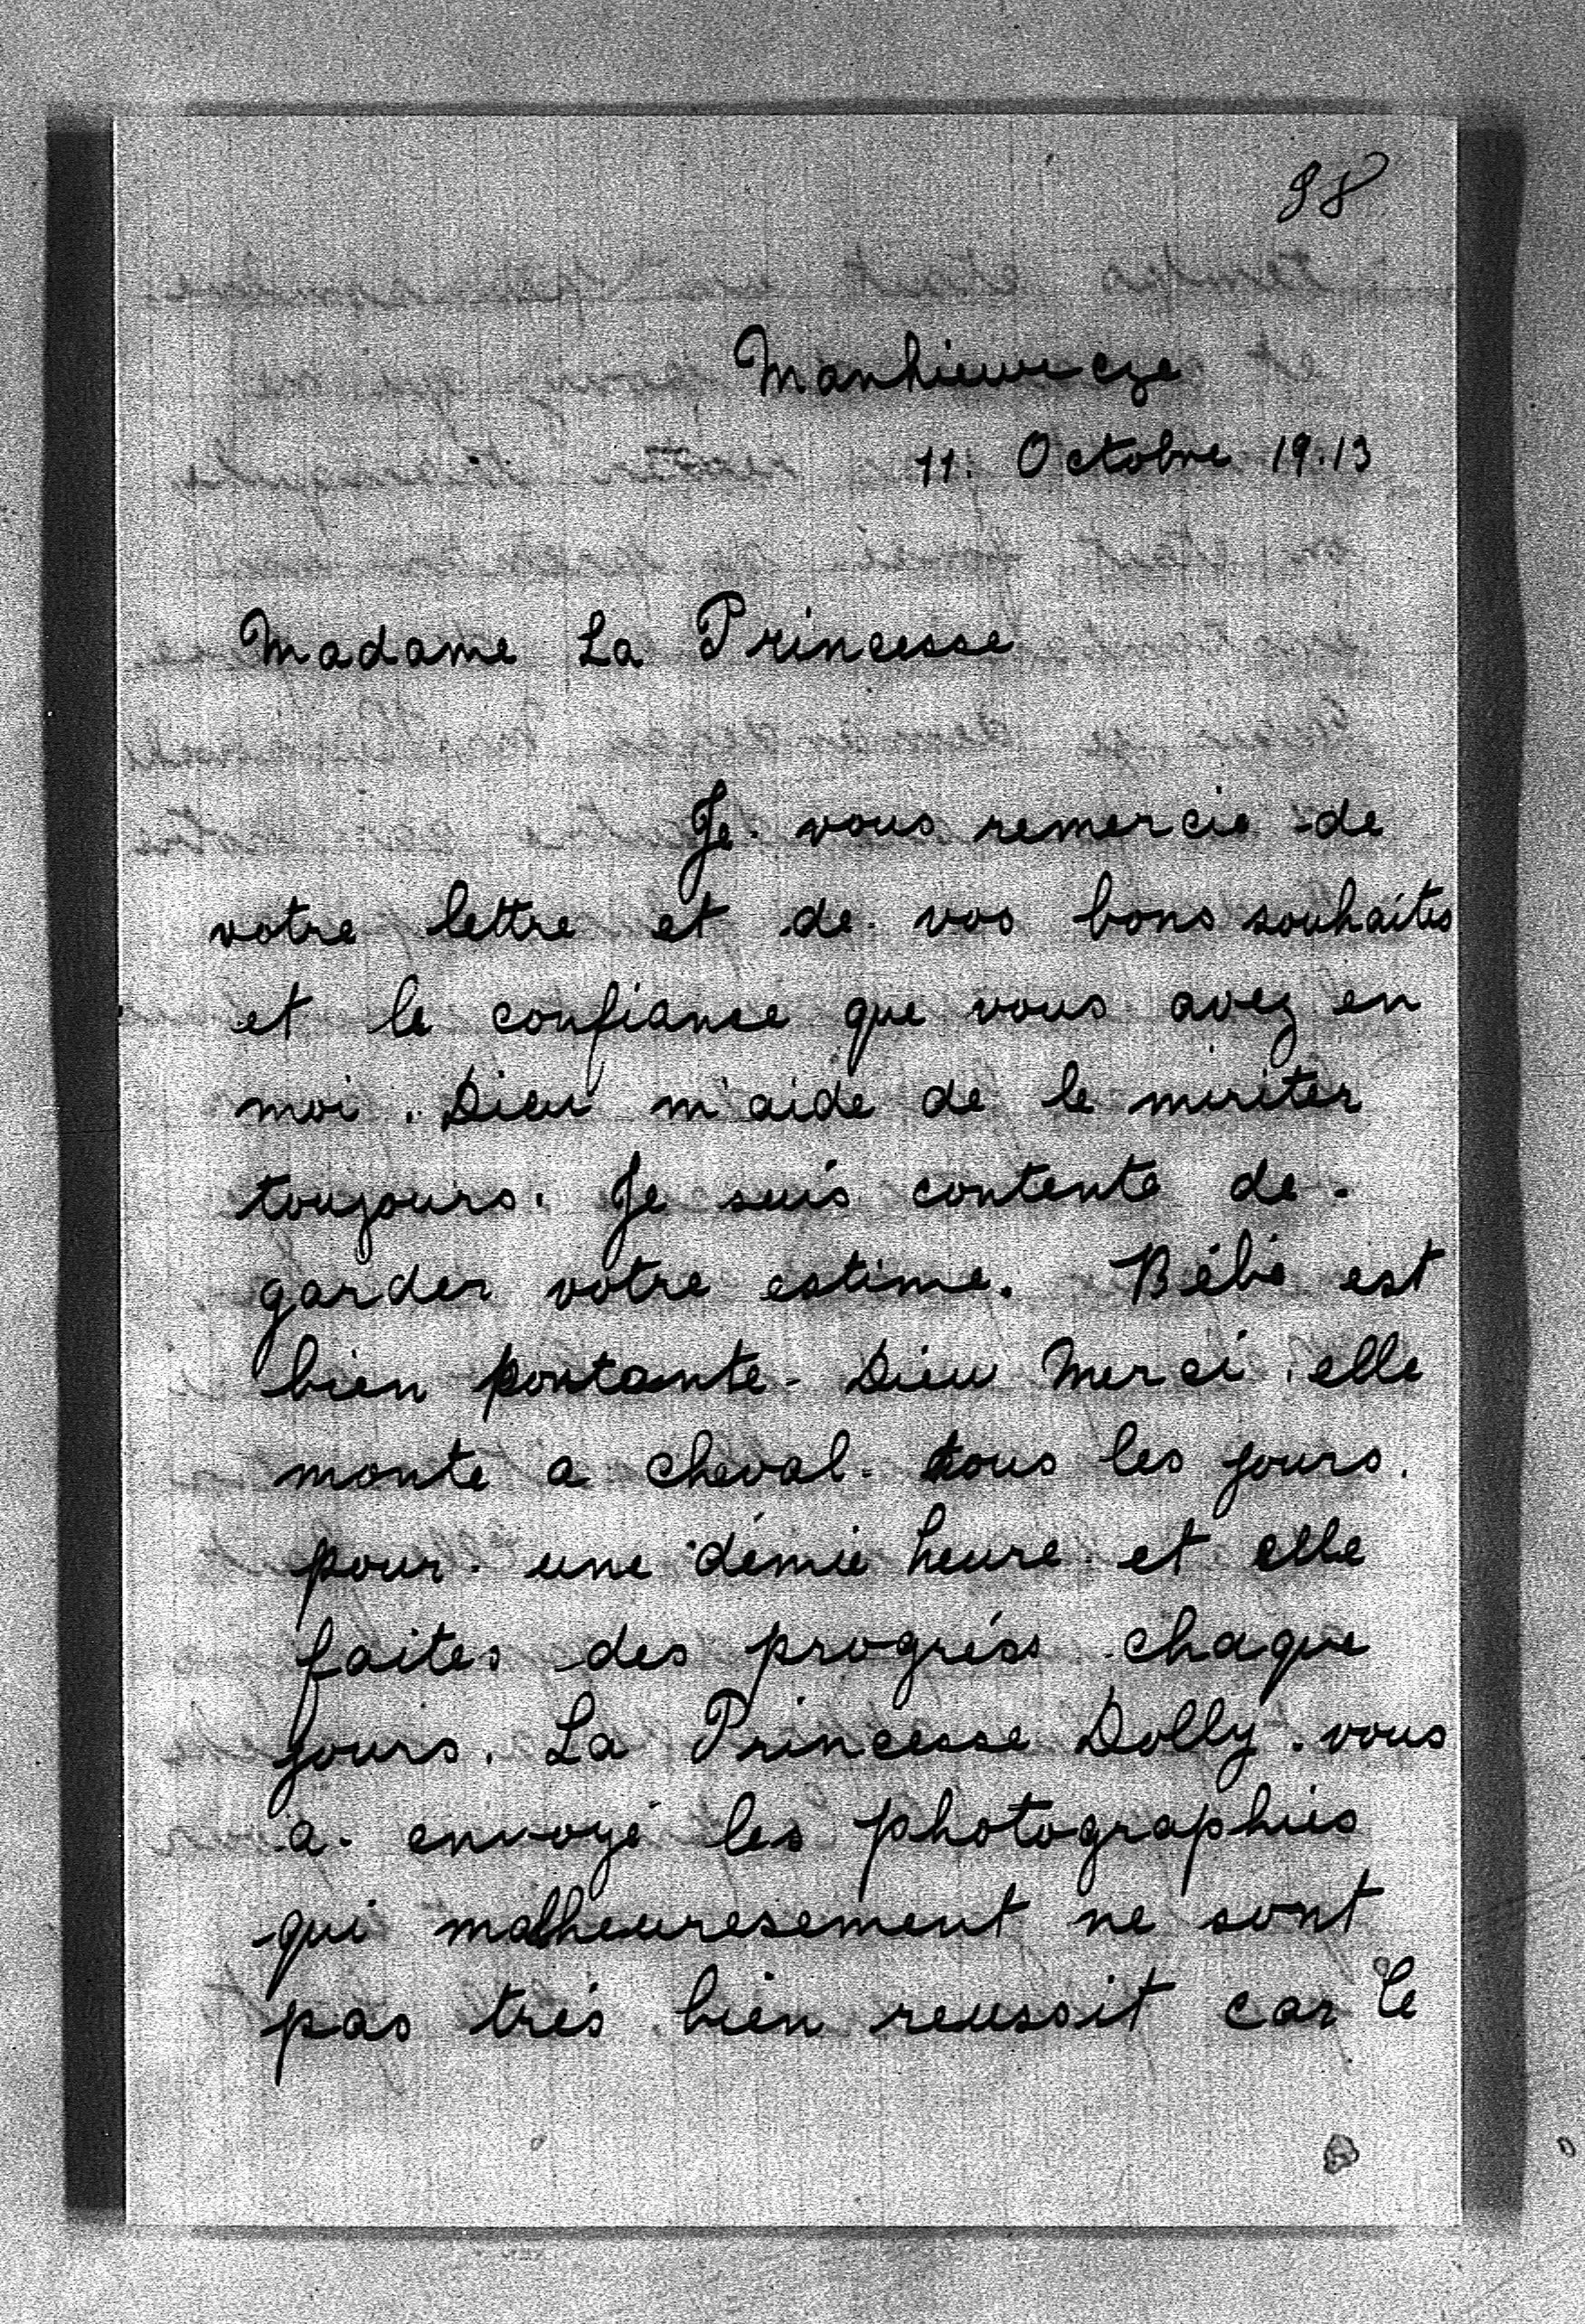 98
Mankiewicze
11. Octobre 19.13
Madame La Princesse
Je vous remercie de
votre lettre et de vos bons souhaites
et le confiance que vous avez en
moi. Dieu m'aide de le miriter
toujours. Je suis contente de
garder votre estime. Bébé est
bien portante - Dieu Merci elle
monte a cheval tous les jours.
pour une démie heure et elle
faites des progréss chaque
jours. La Princesse Dolly vous
a envoyé les photographies
qui malheuresement ne sont
pas trés bien reussit car le